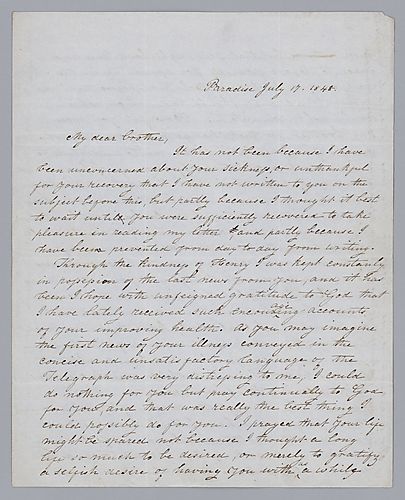 Paradise July 17. 1848.
My dear brother,
It has not been because I have
been unconcerned about your sickness, or unthankful
for your recovery that I have not written to you on the
subject before this, but partly because I thought it best
to wait until you were sufficiently recovered to take
pleasure in reading my letter & and partly because I
have been prevented from day to day from writing.
Through the kindness of Henry I was kept constantly
in possession of the last news from you, and it has
been I hope with unfeigned gratitude to God that
I have lately received such encouraging accounts
of your improving health. As you may imagine
the first news of your illness conveyed in the
concise and unsatisfactory language of the
Telegraph was very distressing to me, I could
do nothing for you but pray continually to God
for you, and that was really the best thing I
could possibly do for you. I prayed that your life
might be spared not because I thought a long
life so much to be desired, or merely to gratify
a selfish desire of having you with me a while